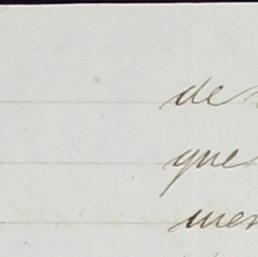 de
que
mer